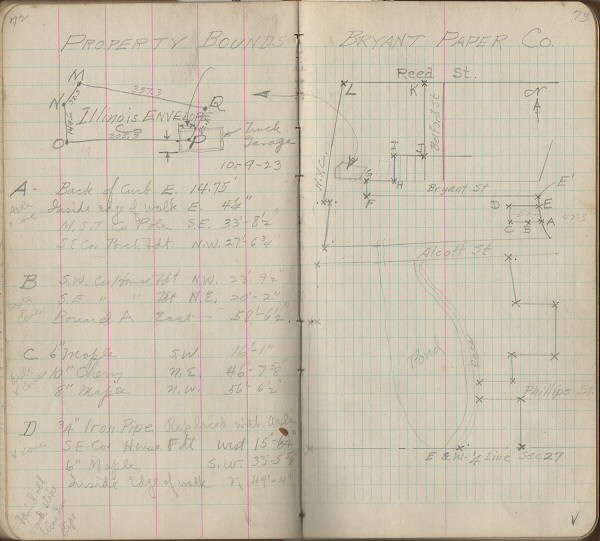 72
PROPERTY BOUNDS
M
357.3
N
Q
Illinois ENVELOPE
O
P
Truck
Garage
10-9-23
A - Back of Curb E. 14.75'
Inside edge of walk E. 4'4"
Pole S.E. 33'-8½"
S.E Cor. Porch Fdt N.W. 27'-6¾"
B S.W. Cor House Fdt N.W. 9½"
S.E " " Fdt N.E. 20'-2"
Bound A East
C 6" Maple S.W. 16'-1"
10" Cherry N.E.
8" Maple N.W. 56'-6½"
D ¾" Iron Pipe Replaced with Axle
S.E Cor House Fdt West
6" Maple S.W.
Inside edge of walk N 49'-4"
73
BRYANT PAPER CO.
Reed St.
L
K
N
Belford St
N.Y.C.
I
J
G
H
F
Bryant St
E'
D
E
C
B
A
Alcott St
Pond
Race
Phillips St.
E & W ¼ Line Sec 27